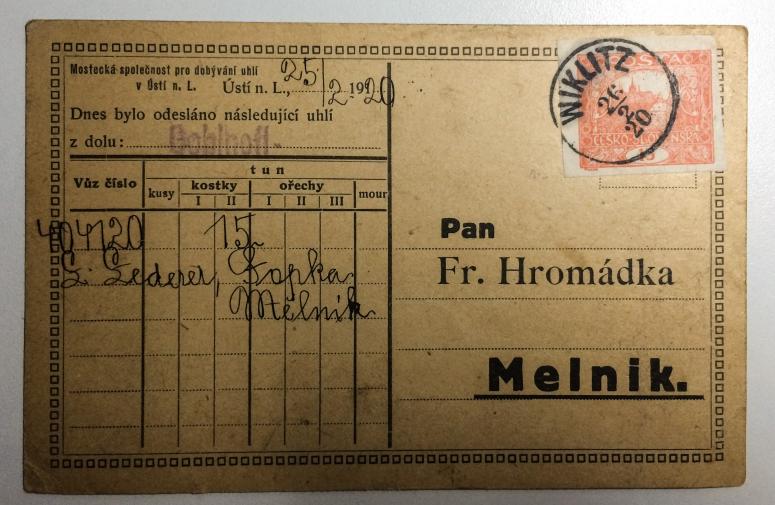 Mostecká společnost pro dobývání uhlí
v Ústí n. L. Ústí n. L., 25/2 1920
Dnes bylo odesláno následující uhlí
z dolu:
Vůz číslo
tun
kusy kostky ořechy mour
I II I II III
404120 15
L. Lederer, Lopka
Mělnik
POŠTA
ČESKO-SLOVENSKÁ
15
WIKLITZ
26/2 20
Pan
Fr. Hromádka
Melnik.